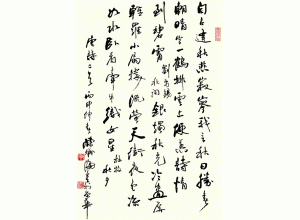 自古逢秋悲寂寥我言秋日勝春
朝晴空一鶴排雲上便引詩情
到碧霄 劉禹錫 秋詞 銀燭秋光冷畫屏
輕羅小扇撲流螢天街夜色涼
如水卧看牽牛織女星 杜牧 秋夕
唐詩二首丙申